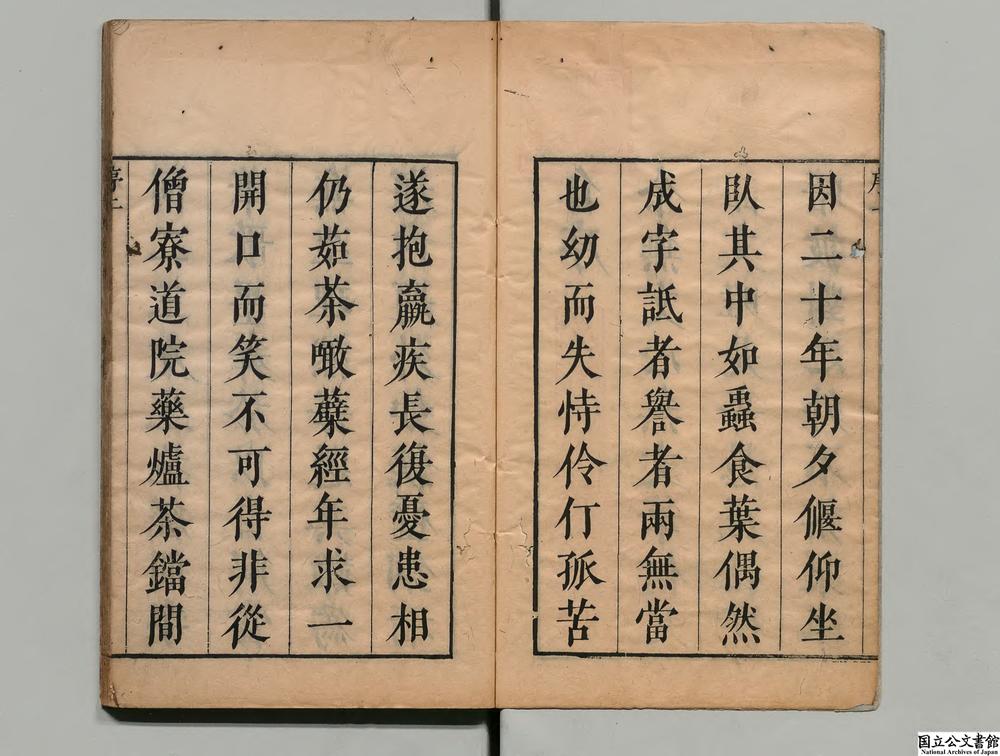 因二十年朝夕偃仰坐
臥其中如蟲食葉偶然
成字詆者譽者兩無當
也幼而失恃伶仃孤苦
遂抱羸疾長復憂患相
仍茹荼噉蘗經年求一
開口而笑不可得非從
僧寮道院藥爐茶鐺間
国立公文書館
National Archives of Japan